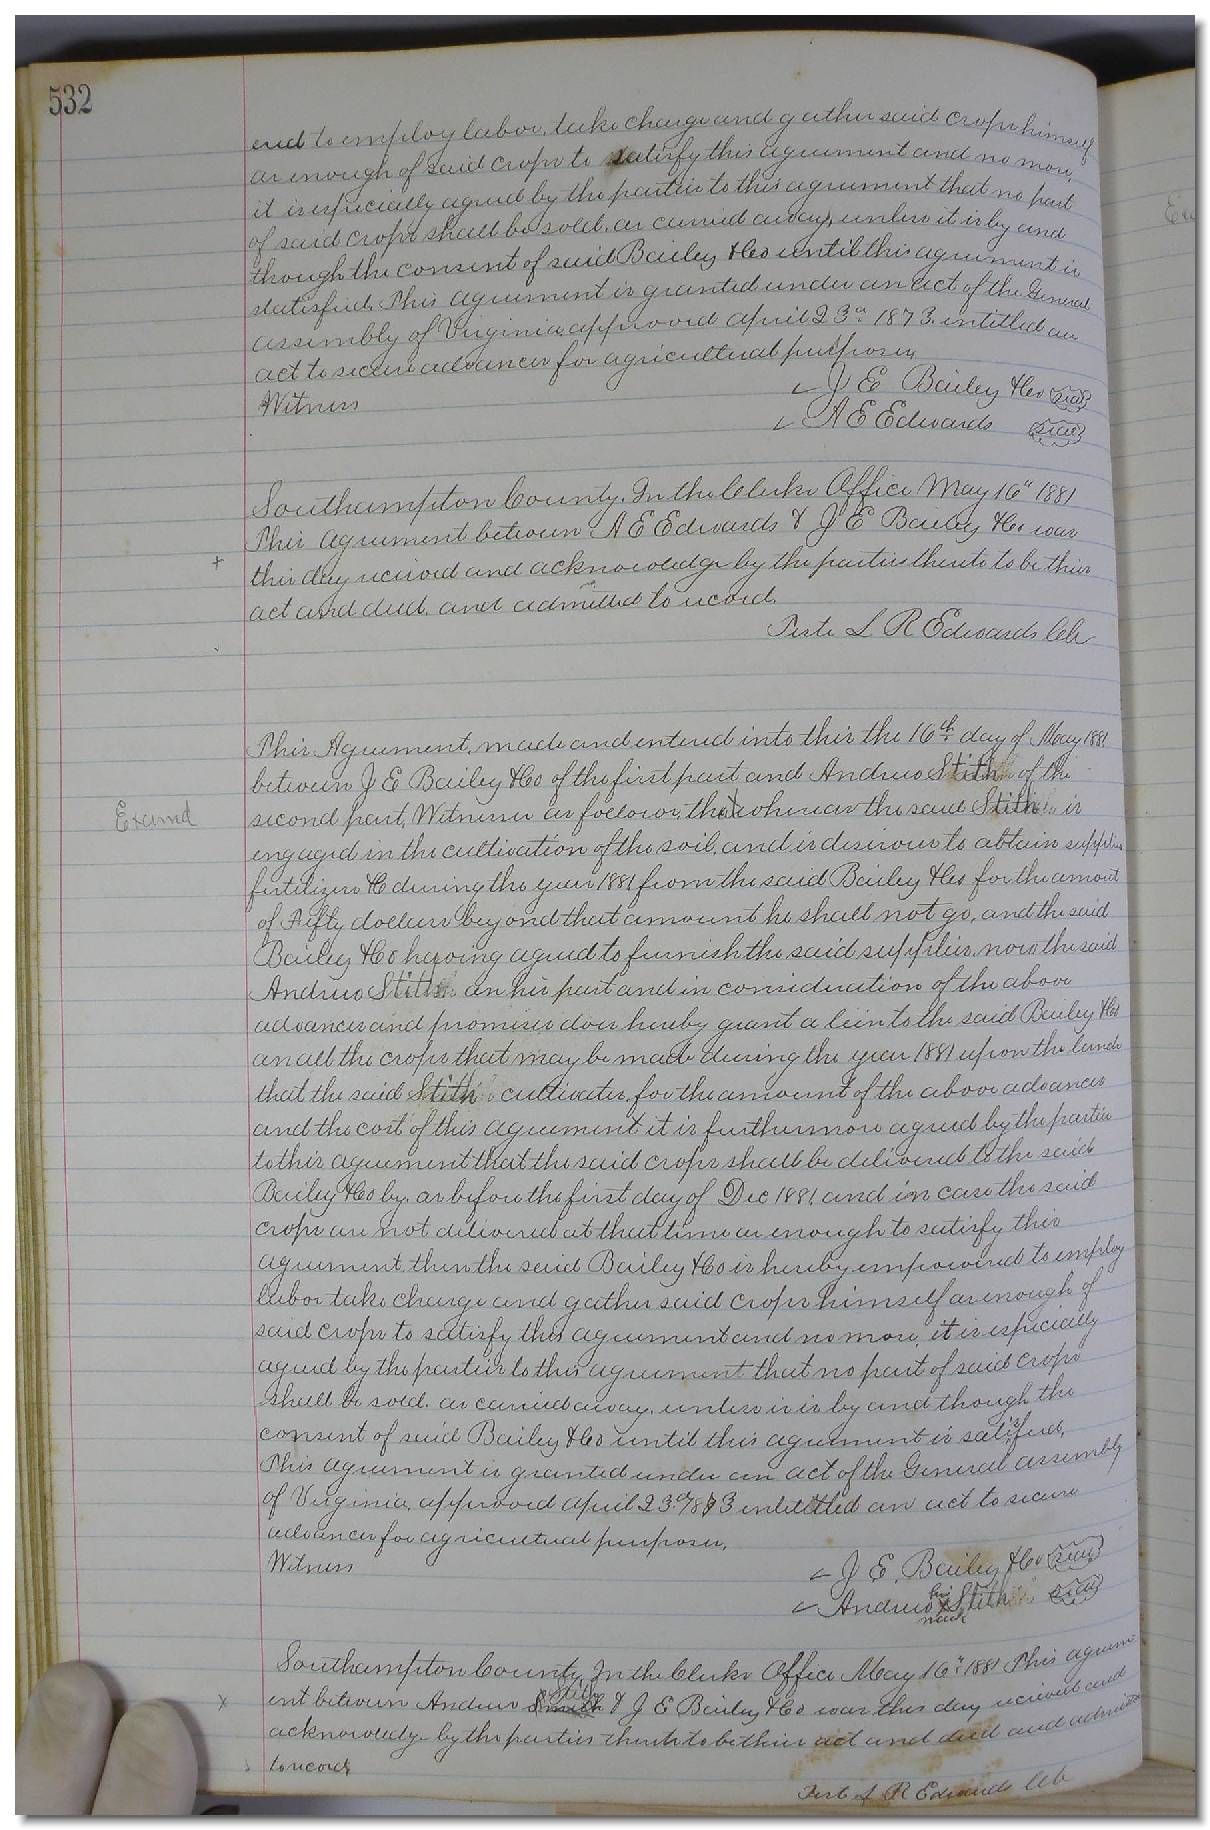 532
ered to employ labor, take charge and gather said crops himself
or enough of said crops to satisfy this agreement and no more,
it is especially agreed by the parties to this agreement that no part
of said crops shall be sold, or carried away, unless it is by and
though the consent of said Bailey & Co until this agreement is
statisfied. This agreement is granted under an act of the General
assembly of Virginia, approved April 23rd 1873. entitled an
act to secure advances for agricultural purposes,
Witness
J E Bailey & Co Seal
A E Edwards Seal
Southampton County. In the Clerks Office May 16th 1881
This agreement between A E Edwards & J E Bailey & Co was
+ this day received and acknowledge by the parties thereto to be their
act and deed, and admitted to record.
Teste L R Edwards Clk
This Agreement, made and entered into this the 16th day of May 1881
between J E Bailey & Co of the first part and Andrew Stith of the
Examd
second part, Witness as follows, that whereas the said Stith is
engaged in the cultivation of the soil, and is desirous to obtain supplies
fertilizers &c during the year 1881 from the said Bailey & Co for the amont
of Fifty dollars beyond that amount he shall not go, and the said
Bailey & Co having agreed to furnish the said supplies, now the said
Andrew Stith on his part and in consideration of the above
advances and promises does hereby grant a lein to the said Bailey & Co
on all the crops that may be made during the year 1881 upon the lands
that the said Stith cultivates, for the amount of the above advances
and the cost of this agreement it is furthermore agreed by the parties
to this agreement that the said crops shall be delivered to the said
Bailey & Co by, or before the first day of Dec 1881, and in case the said
crops are not delivered at that time or enough to satisfy this
agreement, then the said Bailey & Co is hereby empowered to employ
labor take charge and gather said crops himself or enough of
said crops to satisfy this agreement and no more, it is especially
agreed by the parties to this agreement that no part of said crops
shall be sold, or carried away, unless it is by and though the
consent of said Bailey & Co until this agreement is satisfied,
This agreement is granted under an act of the General assembly
of Virginia, approved April 23d 1873 entitled an act to secure
advances for agricultural purposes,
Witness
J. E. Bailey & Co Seal
his
Andrew X Stith Seal
mark
Southampton County, In the Clerks Office May 16th 1881 This agreem
Stith
x ent between Andrew Smith & J E Bailey & Co was this day received and
acknowledge by the parties thereto to be their act and deed and admitted
to record
Teste L R Edwards Clk